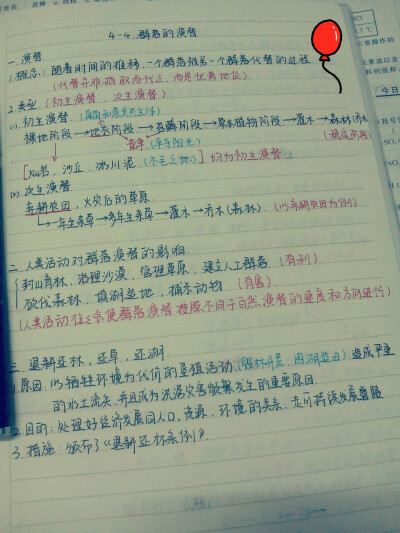 4-4 群落的演替
一. 演替
1.概念：随着时间的推移，一个群落被另一个群落代替的过程
(代替并非摘取而代之，而是优势地位)
2.类型 (初生演替、次生演替)
(1) 初生演替
裸地阶段→地衣阶段→苔藓阶段→草本植物阶段→灌木→森林(乔木)
[火山岩、沙丘、冰川泥 (不毛之地)] 均为初生演替
(2) 次生演替
弃耕农田，火灾后的草原
→一年生杂草→多年生杂草→灌木→乔木(森林) (以弃耕农田为例)
二. 人类活动对群落演替的影响
封山育林，治理沙漠，管理草原，建立人工群落 (有利)
砍伐森林，填湖造地，捕杀动物 (有害)
(人类活动往往会使群落演替按照不同于自然演替的速度和方向进行)
三. 退耕还林，还草，还湖
1.原因：以牺牲环境为代价的垦殖活动(毁林开荒，围湖造田) 造成严重
的水土流失，并且成为洪涝灾害频繁发生的重要原因
2.目的：处理好经济发展同人口、资源、环境的关系，走可持续发展道路
3.措施：颁布了《退耕还林条例》